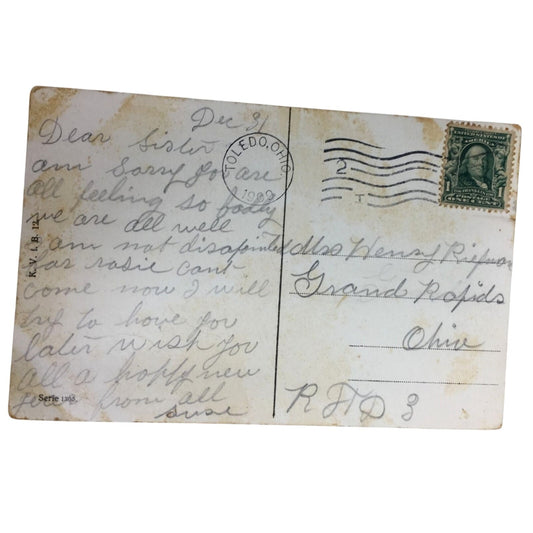 Dec 31
Dear Sister
am sorry you are
all feeling so badly
we are all well
I am not disapointed
rosie cant
come now I will
try to have you
later wish you
all a happy new
year from all
Suse
TOLEDO, OHIO.
1909
2
T
1
Mrs Henry
Grand Rapids
Ohio
R F D 3
K. V. i. B. 12
Serie 1303.